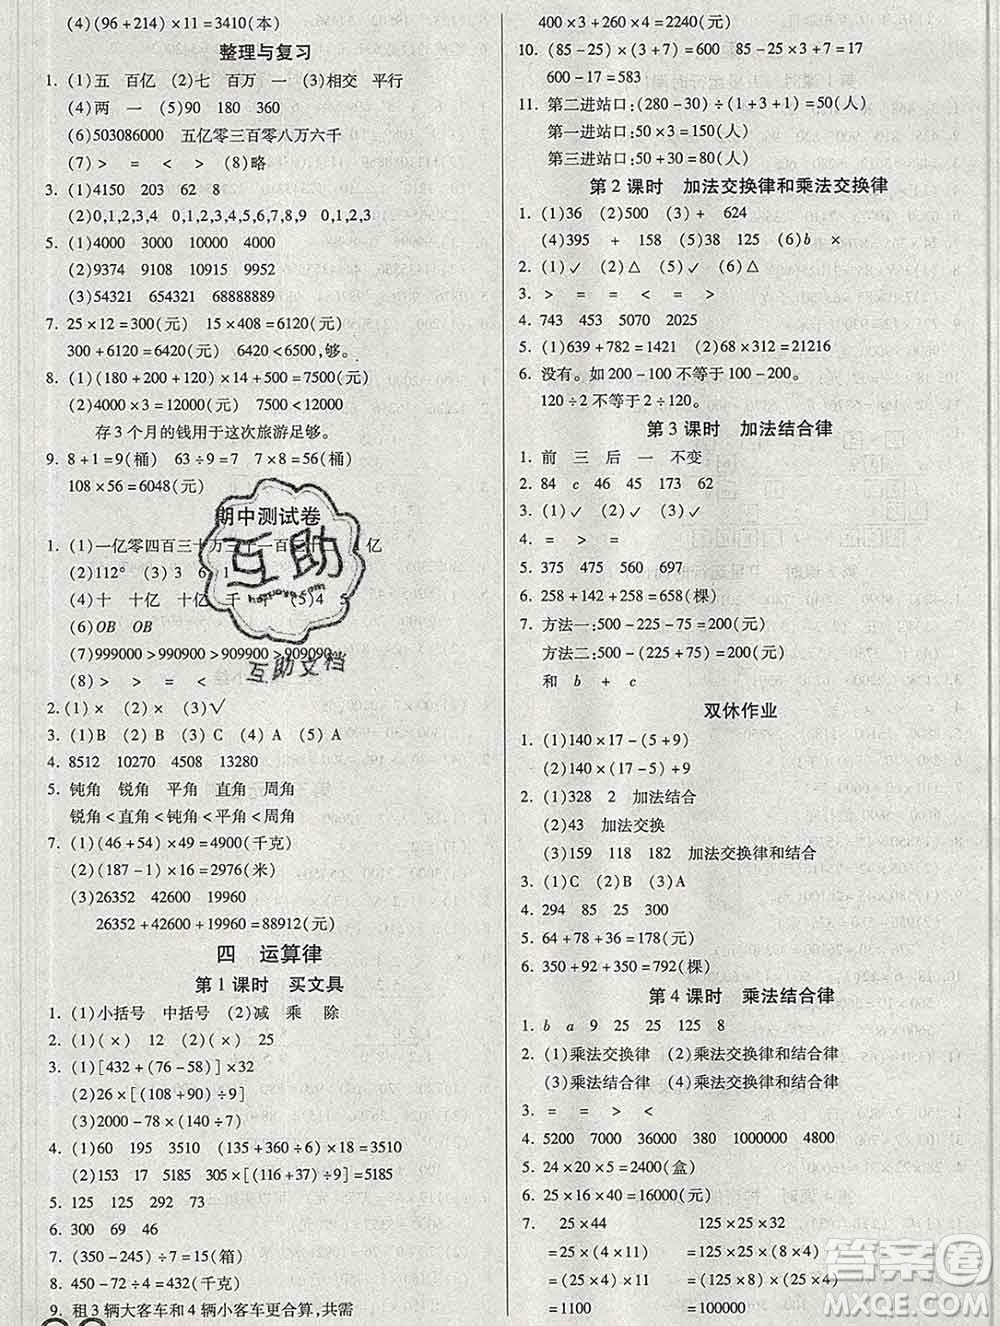 (4)(96+214)×11=3410(本)
整理与复习
1. (1)五　百亿　(2)七　百万　一　(3)相交　平行
(4)两　一　(5)90　180　360
(6)503086000　五亿零三百零八万六千
(7)>　=　<　>　(8)略
3. (1)4150　203　62　8
(2)0,1,2,3,4　0,1,2,3,4,5,6,7,8,9　0,1,2,3
5. (1)4000　3000　10000　4000
(2)9374　9108　10915　9952
(3)54321　654321　68888889
7. 25×12=300(元)　15×408=6120(元)
300+6120=6420(元)　6420<6500,够。
8. (1)(180+200+120)×14+500=7500(元)
(2)4000×3=12000(元)　7500<12000
存3个月的钱用于这次旅游足够。
9. 8+1=9(桶)　63÷9=7　7×8=56(桶)
108×56=6048(元)
期中测试卷
1. (1)一亿零四百三十万三千一百 亿
(2)112°　(3)3　6
(4)十　十亿　十亿　千 (5)4　5
(6)OB　OB
(7)999000>990900>909900>909090
(8)>　>　=　<
2. (1)×　(2)×　(3)√
3. (1)B　(2)B　(3)C　(4)A　(5)A
4. 8512　10270　4508　13280
5. 钝角　锐角　平角　直角　周角
锐角<直角<钝角<平角<周角
7. (1)(46+54)×49=4900(千克)
(2)(187-1)×16=2976(米)
(3)26352　42600　19960
26352+42600+19960=88912(元)
四　运算律
第1课时　买文具
1. (1)小括号　中括号　(2)减　乘　除
2. (1)(×)　12　(2)(×)　25
3. (1)[432+(76-58)]×32
(2)26×[(108+90)÷9]
(3)2000-78×(140÷7)
4. (1)60　195　3510　(135+360÷6)×18=3510
(2)153　17　5185　305×[(116+37)÷9]=5185
5. 125　125　292　73
6. 300　69　39　720
7. (350-245)÷7=15(箱)
8. 450-72÷4=432(千克)
9. 租3辆大客车和4辆小客车更合算,共需
400×3+260×4=2240(元)
10. (85-25)×(3+7)=600　85÷5=17
600-17=583
11. 第二进站口:(280-30)÷(1+3+1)=50(人)
第一进站口:50×3=150(人)
第三进站口:50+30=80(人)
第2课时　加法交换律和乘法交换律
1. (1)36　(2)500　(3)+　624
(4)395　+　158　(5)38　125　(6)b　×
2. (1)✓　(2)△　(3)✓　(4)✓　(5)✓　(6)△
3. >　=　=　=　<　>
4. 743　453　5070　2025
5. (1)639+782=1421　(2)68×312=21216
6. 没有。如200-100不等于100-200。
120÷2不等于2÷120。
第3课时　加法结合律
1. 前　三　后　一　不变
2. 84　c　46　45　173　62
3. (1)✓　(2)✓　(3)✓
4. =　=　>　<
5. 375　425　560　697
6. 258+142+258=658(棵)
7. 方法一:500-225-75=200(元)
方法二:500-(225+75)=200(元)
和　b　+　c
双休作业
1. (1)140×17-(5+9)
(2)140×(17-5)+9
2. (1)328　2　加法结合
(2)43　加法交换
(3)159　118　182　加法交换律和结合
3. (1)C　(2)B　(3)A
4. 294　85　25　300
5. 64+78+36=178(元)
6. 350+92+350=792(棵)
第4课时　乘法结合律
1. b　a　9　25　25　125　8
2. (1)乘法交换律　(2)乘法交换律和结合律
(3)乘法结合律　(4)乘法交换律和结合律
3. =　=　>　<
4. 5200　7000　36000　380　1000000　4800
5. 24×20×5=2400(盒)
6. 25×16×40=16000(元)
7. 25×44　125×25×32
=25×(4×11)　=125×25×(4×8)
=(25×4)×11　=(125×8)×(25×4)
=1100　=100000
互助
互助文档
答案圈
MXQE.COM